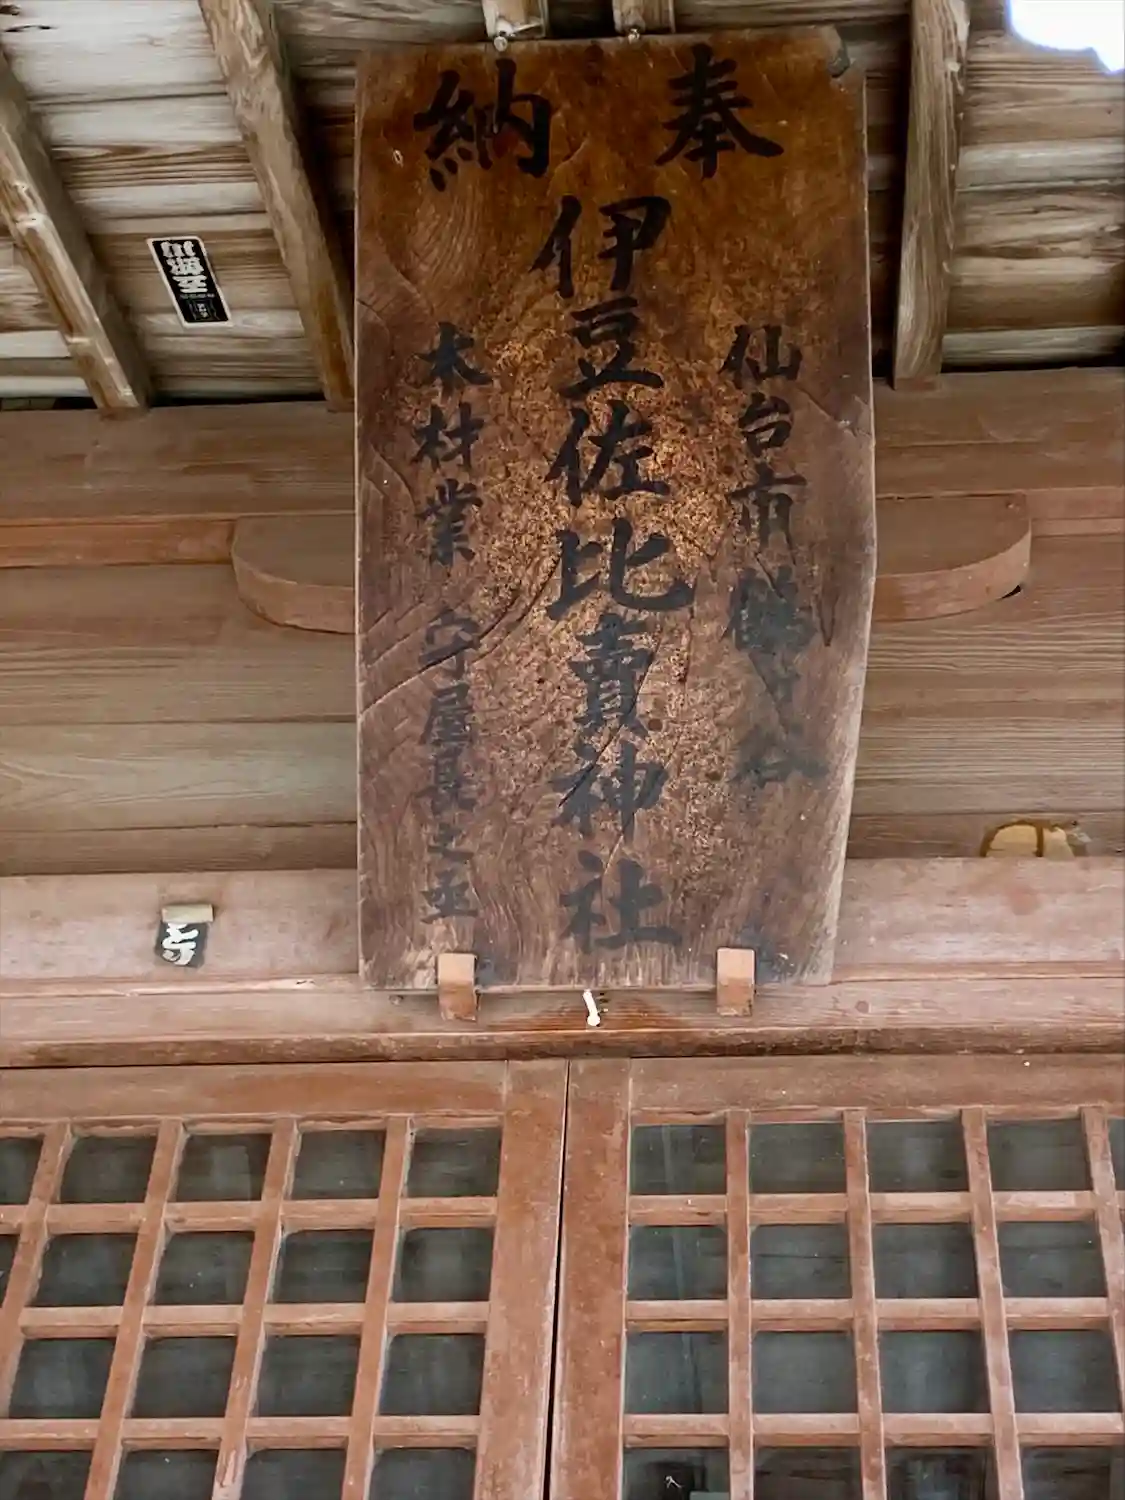 奉納
仙台市 鶴ヶ谷
伊豆佐比賣神社
木材業 守屋具之丞